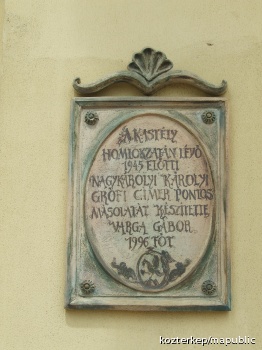 A KASTÉLY
HOMLOKZATÁN LÉVŐ
1945 ELŐTTI
NAGYKÁROLYI KÁROLYI
GRÓFI CÍMER PONTOS
MÁSOLATÁT KÉSZÍTETTE
VARGA GÁBOR
1996-TÓL
kozterkep/mapublic